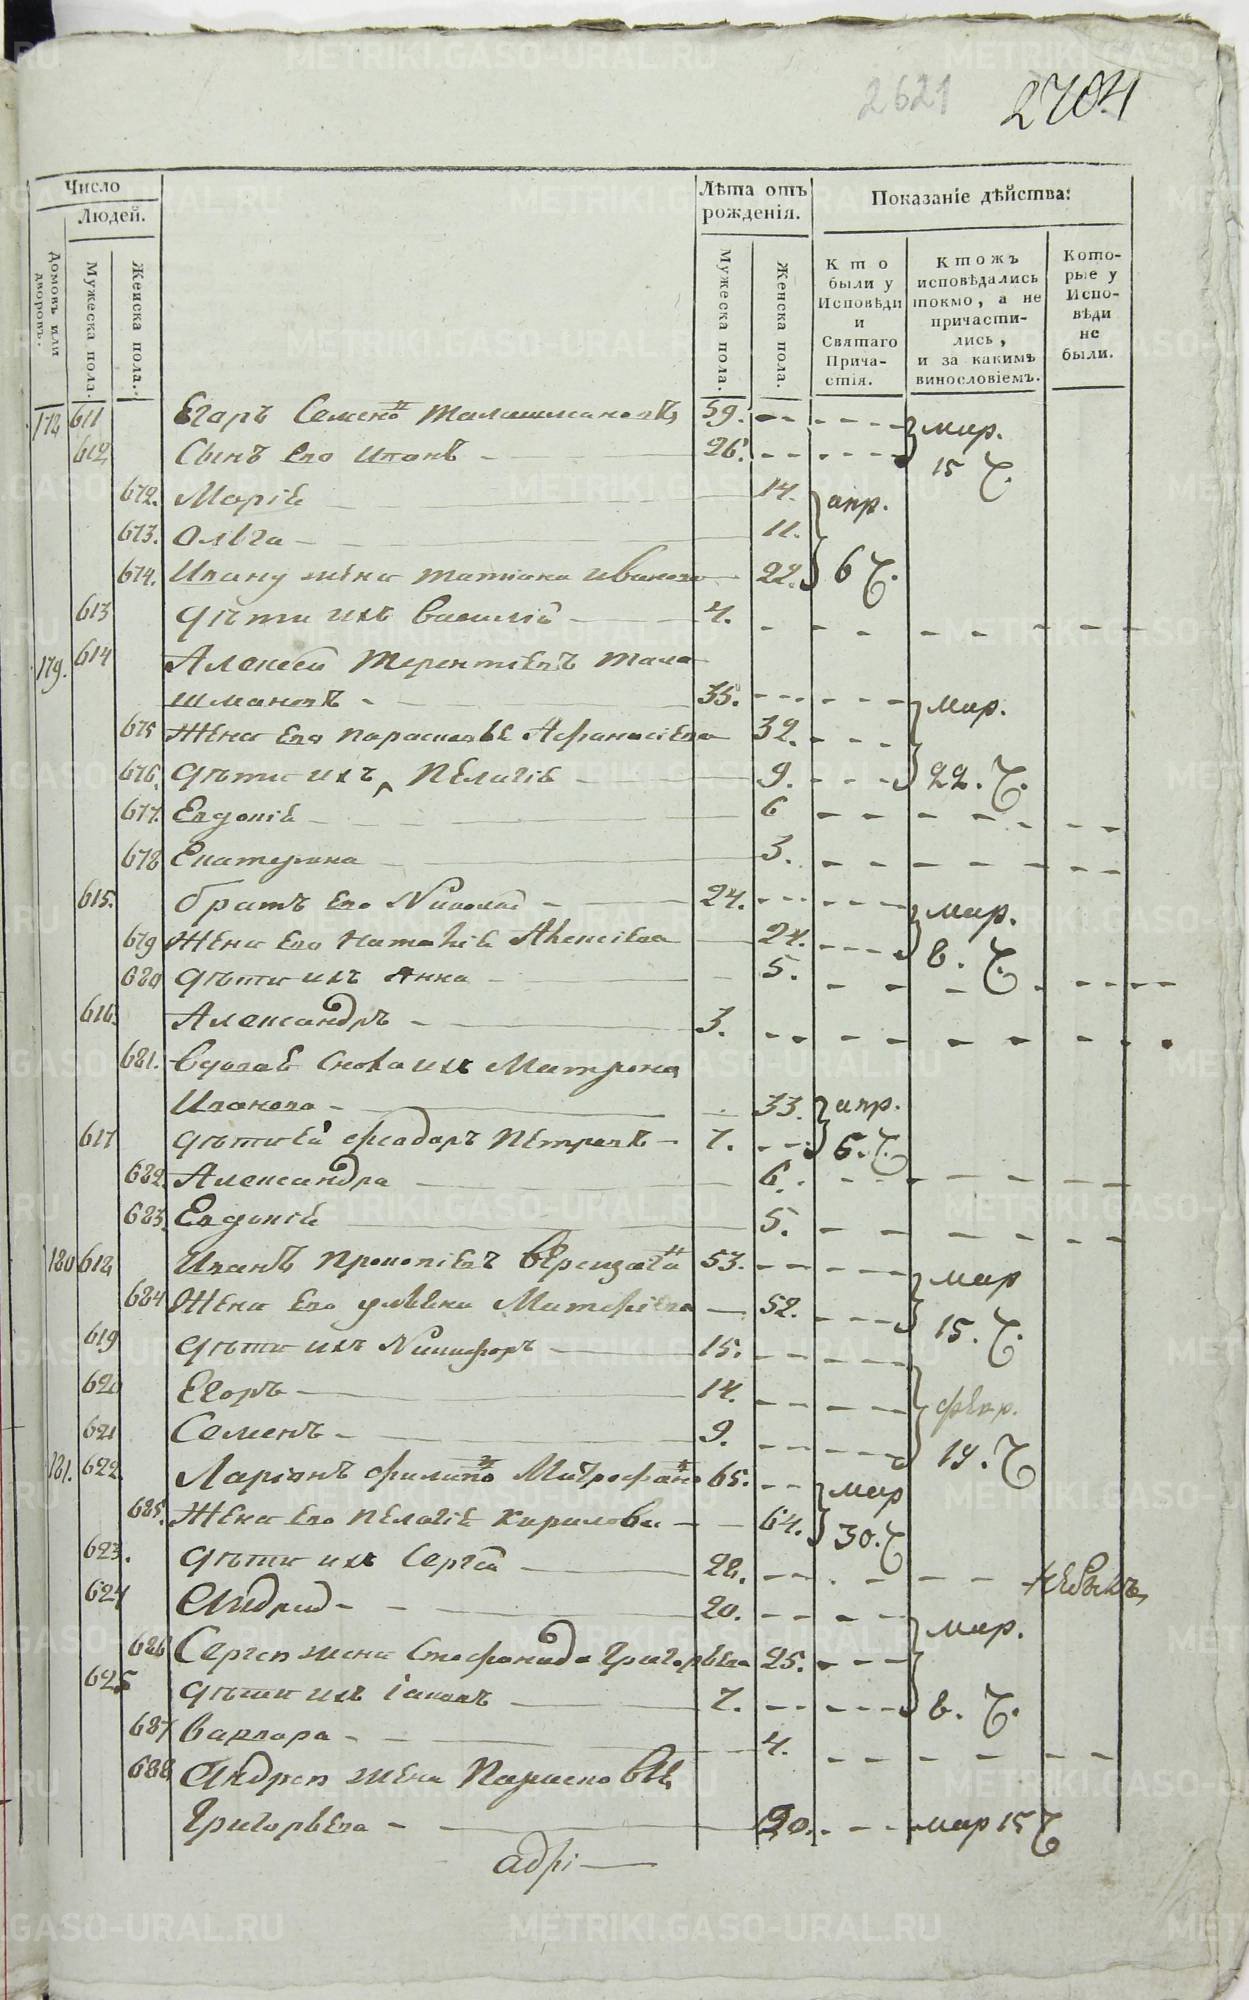 2621
2704
Число
Людей.
Домовъ или дворовъ.
Мужеска пола.
Женска пола.
Лѣта отъ рожденія.
Мужеска пола.
Женска пола.
Показаніе дѣйства:
Кто были у Исповѣди и Святаго Причастія.
Ктожъ исповѣдались токмо, а не причастились, и за какимъ винословіемъ.
Которые у Исповѣди не были.
178 611 Егаръ Семено Талашмановъ 59. мар.
612 Сынъ Его Иванъ 26. 15 Ч.
672. Маріѣ 14. апр.
673. Ольга 11.
674. Ивану жена Татиана Иванова 22. 6 Ч.
613 Дѣти ихъ Василій 4.
179. 614 Алексей Терентіевъ Тала
шмановъ 35. мар.
675 Жена Его Парасковьѣ Афанасіева 32.
676. Дѣти ихъ Пелагіѣ 9. 22. Ч.
677. Евдокіѣ 6
678 Екатерина 3.
615. Братъ Его Николай 24. мар.
679 Жена Его Наталіѣ Алексіева 24. 8. Ч.
680 Дѣти ихъ Анна 5.
616. Александръ 3.
681. Вдоваѣ Сноха ихъ Матрона
Иванова 33. апр.
617 Дѣти Ей Феодаръ Петровъ 7. 6. Ч.
682. Александра 6.
683. Евдокіѣ 5.
180 618 Иванъ Прокопіевъ 53. мар
684 Жена Его Ульяна Матфіева 52. 15. Ч.
619 Дѣти ихъ Никифоръ 15.
620 Егоръ 14. февр.
621 Семенъ 9. 19. Ч
181. 622 Ларіонъ Филипо Митрофано 65. мар
685. Жена Его Пелагіѣ Кирилова 64. 30. Ч
623. Дѣти ихъ Сергей 28. небылъ
624 Андрей 20. мар.
686 Сергея жена Стефанида Григорьева 25.
625 Дѣти ихъ Іаковъ 7. 8. Ч.
687 Варвара 4.
688 Андрея жена Парасковьѣ
Григорьева 20. мар 15 Ч
адрі
METRIKI.GASO-URAL.RU